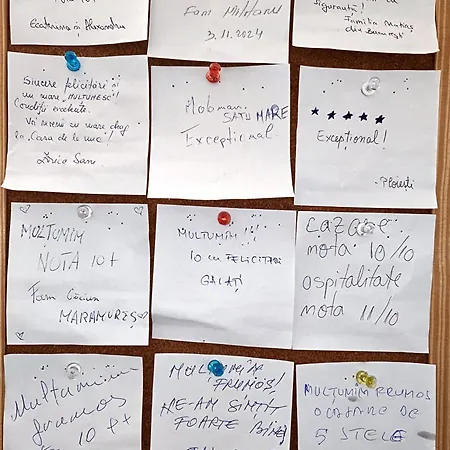 Ecaterina și Alexandru
Fam Militaru
3.11.2024
Siguranță!
Familia
din București
Sincere felicitări și
un mare "MULȚUMESC"!
Condiții excelente.
Vă
la "Casa de la
SATU MARE
Excepțional
★ ★ ★ ★ ★
Excepțional!
-Ploiești
MULȚUMIM
NOTA 10+
Fam Crăciun
MARAMUREȘ
MULȚUMIM !!!
10 cu FELICITĂRI
GALAȚI
CAZARE
nota 10/10
ospitalitate
nota 11/10
Multumim
frumos
10 ++
MULȚUMIM
FRUMOS!
NE-AM SIMȚIT
FOARTE BINE,
MULTUMIM FRUMOS
O CAZARE DE
5 STELE